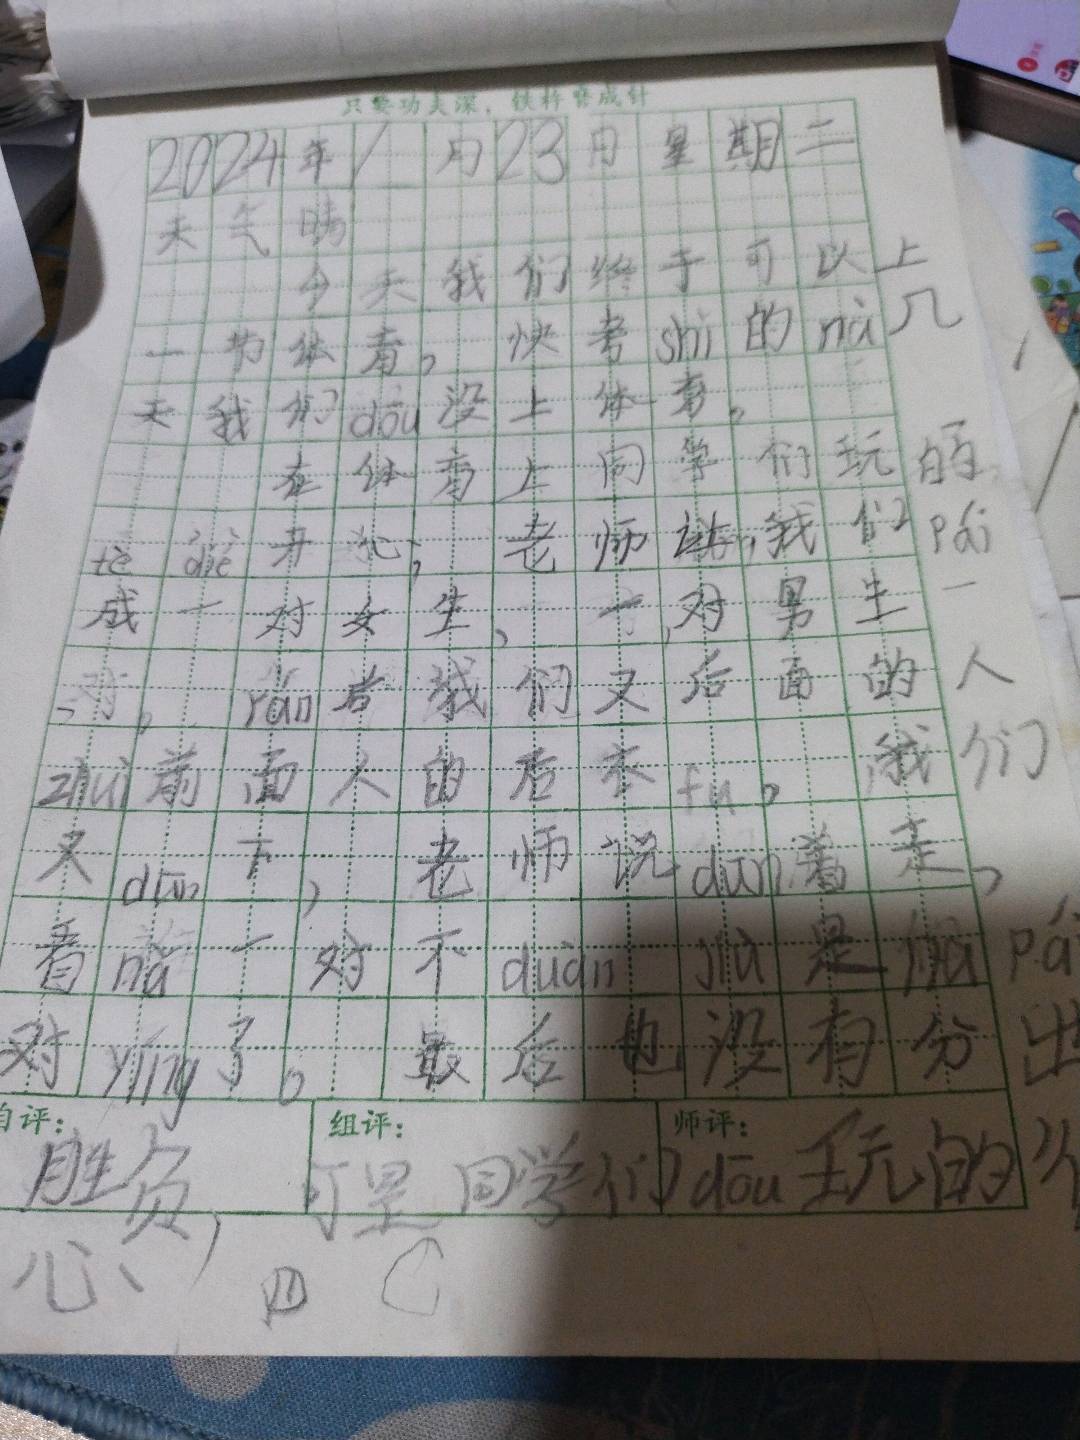 只要功夫深，铁杵磨成针
2024年1月23日星期二
天气晴
今天我们终于可以上
一节体育，快考shì的nà几
天我们dōu没上体育。
在体育上同学们玩的
tè dié开心，老师让我们pái
成一对女生，一对男生一
对，rán后我们又后面的人
zhuì前面人的后衣fu。我们
又dūn下，老师说dūn着走，
看nǎ一对不duàn jiù是nǎ pái
对yíng了。最后也没有分出
自评：
组评：
师评：
胜负，可是同学们dōu玩的
心、